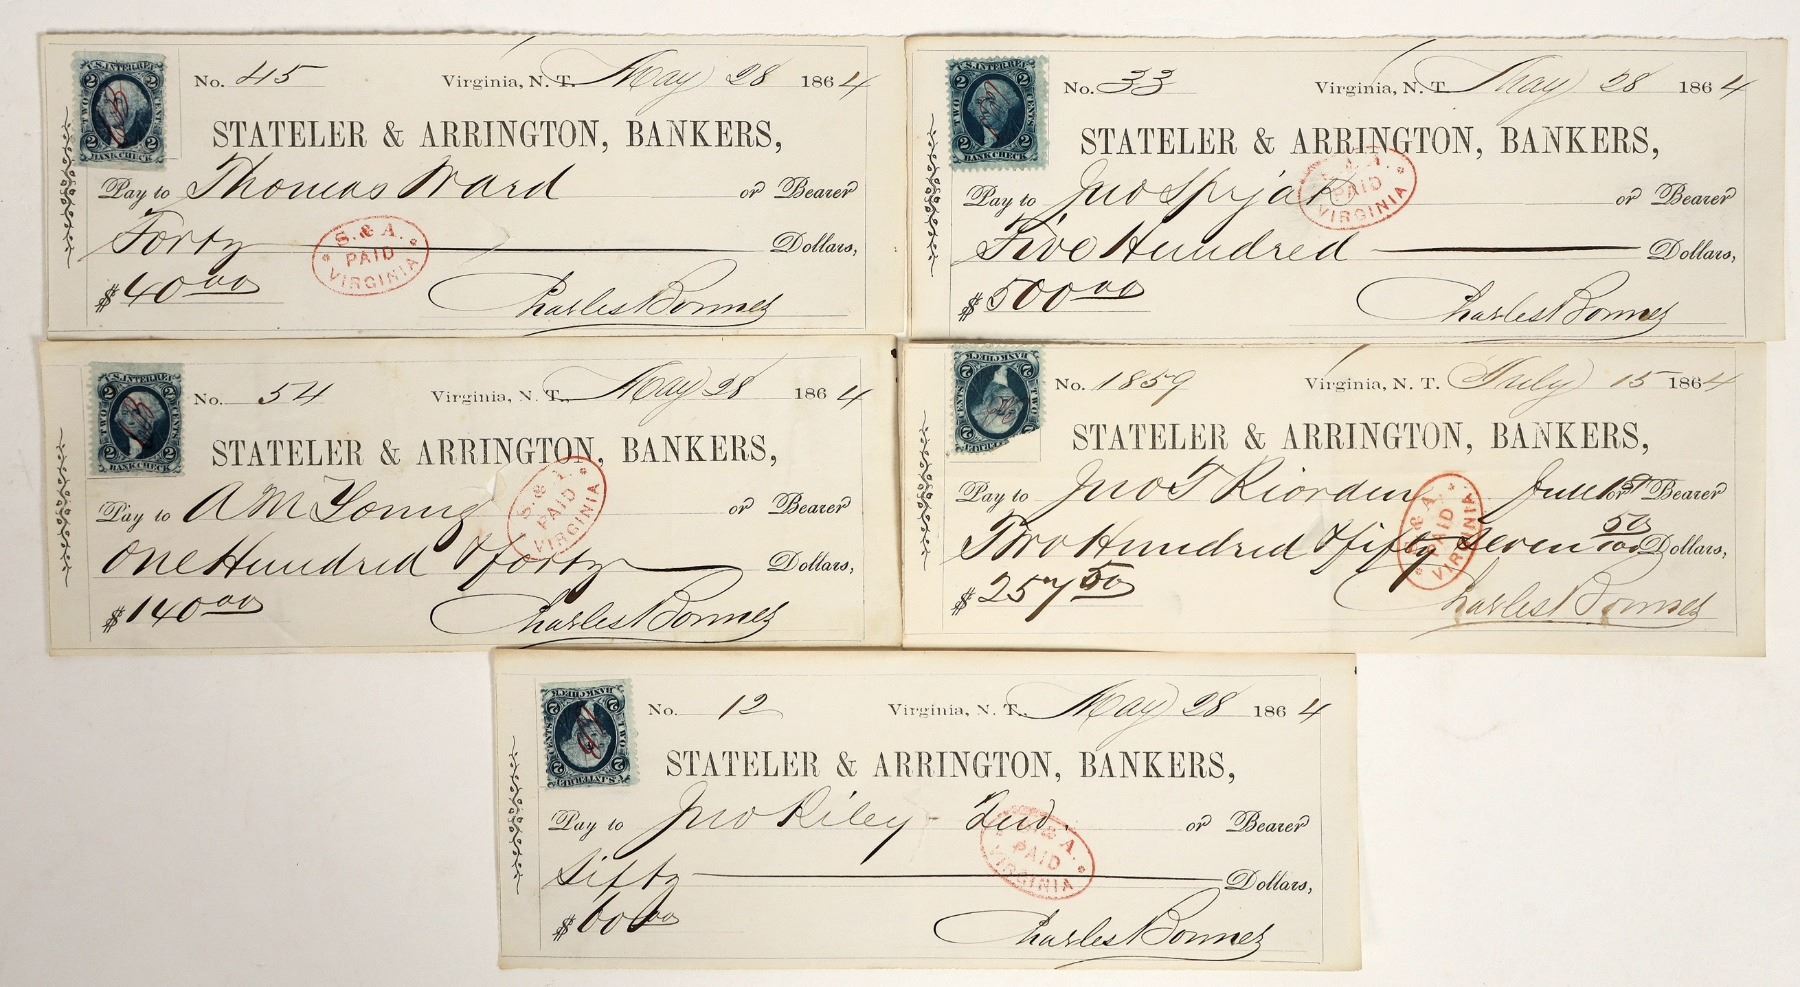 U.S. INTER. REV.
2 2
TWO CENTS
2 2
BANK CHECK
No. 45 Virginia, N. T. May 28 1864
STATELER & ARRINGTON, BANKERS,
Pay to Thomas Ward or Bearer
Forty Dollars,
$40.00
S. & A.
PAID
VIRGINIA
Charles Bonner
U.S. INTER. REV.
2 2
TWO CENTS
2 2
BANK CHECK
No. 33 Virginia, N. T. May 28 1864
STATELER & ARRINGTON, BANKERS,
Pay to Jno or Bearer
Five Hundred Dollars,
$500.00
PAID
VIRGINIA
Charles Bonner
U.S. INTER. REV.
2 2
TWO CENTS
2 2
BANK CHECK
No. 54 Virginia, N. T. May 28 1864
STATELER & ARRINGTON, BANKERS,
Pay to A M Young or Bearer
One Hundred & forty Dollars,
$140.00
S. & A.
PAID
VIRGINIA
Charles Bonner
BANK CHECK
2 2
TWO CENTS
2
No. 1859 Virginia, N. T. July 15 1864
STATELER & ARRINGTON, BANKERS,
Pay to Jno T Riorden or Bearer
Two Hundred & fifty Seven 50/100 Dollars,
$257.50
S. & A.
PAID
VIRGINIA
Charles Bonner
BANK CHECK
2 2
TWO CENTS
2 2
U.S. INTER. REV.
No. 12 Virginia, N. T. May 28 1864
STATELER & ARRINGTON, BANKERS,
Pay to Jno Riley - or Bearer
Sixty Dollars,
$60.00
& A.
PAID
VIRGINIA
Charles Bonner